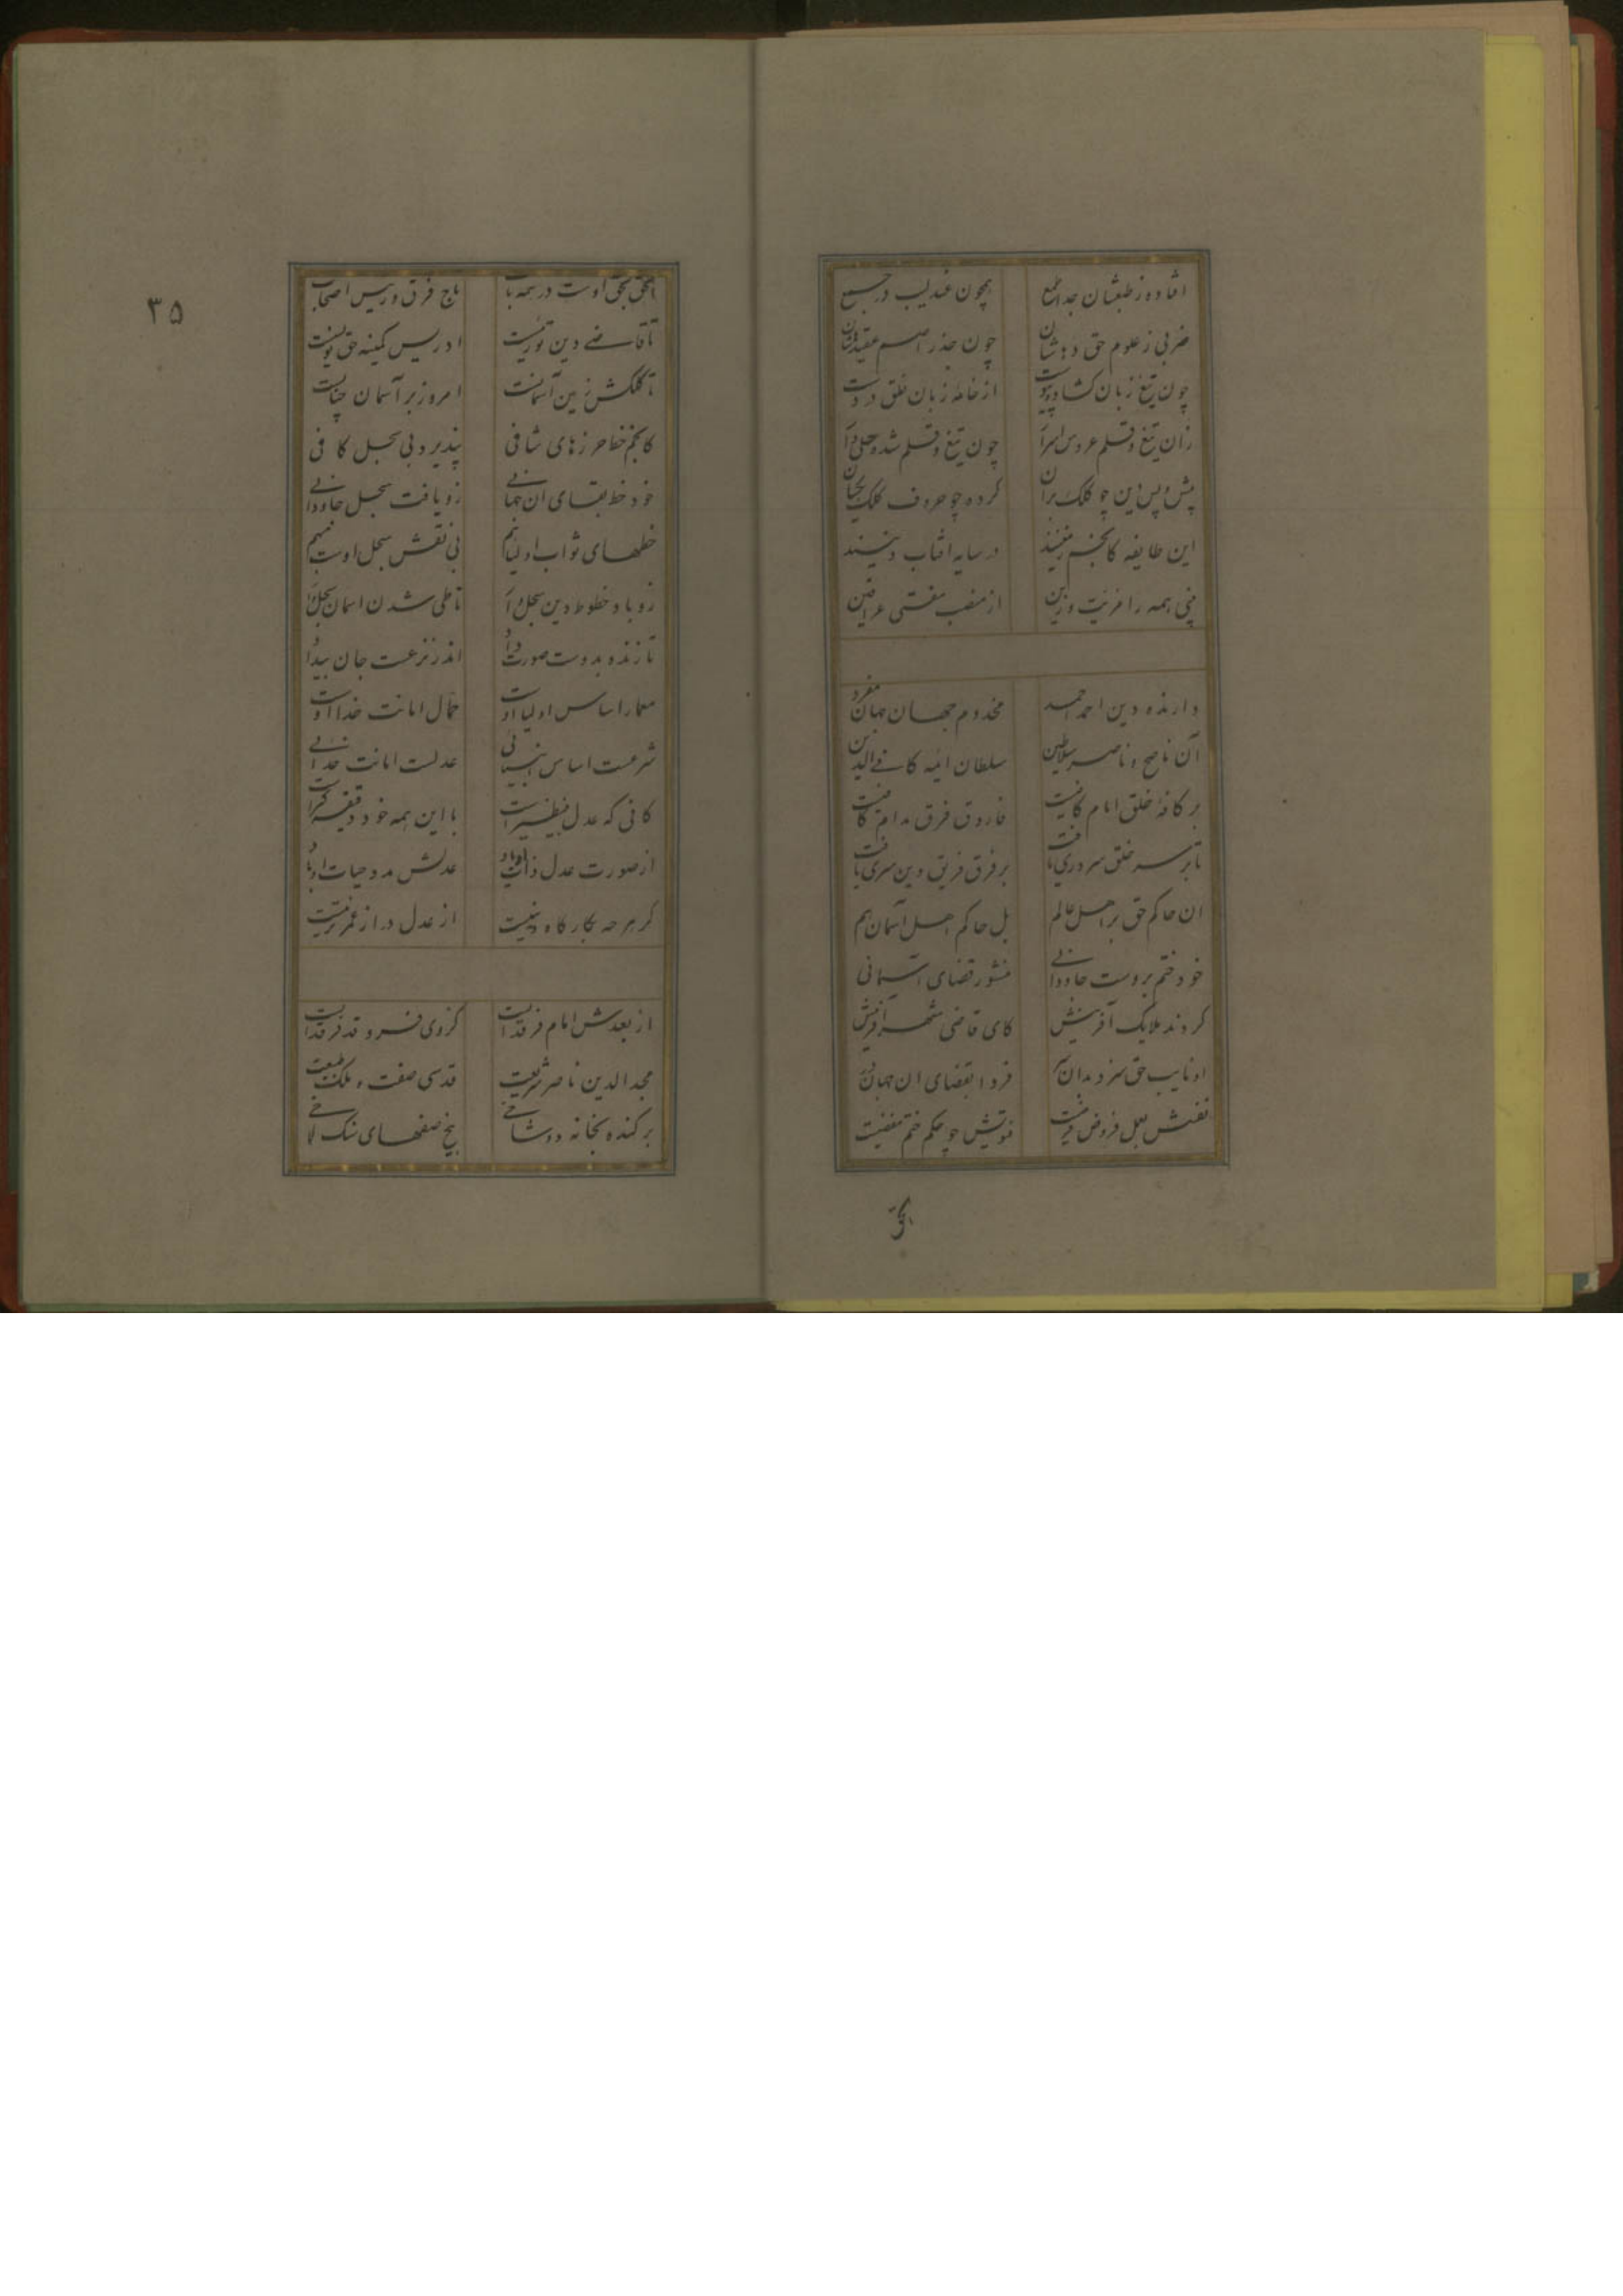 افتاده ز طبعشان جدا طمع
همچون عندلیب در جمع
ضربی ز علوم حق دهاشان
چون جذر اصم عقیدشان
چون تیغ زبان کشاده پیوست
از خامهٔ زبان خلق در دست
زان تیغ و قلم عروس اسرا
چون تیغ و قلم شده حلی دار
پیش و پس دین چو کلک بران
کرده چو حروف کلک
این طایفه کانجم
در سایه افتاب
همه را مزیت و زین
از منصب مفتی عراقین
دارنده دین احمد احمد
مخدوم جهان جهان مفرد
آن ناصح و ناصر سلاطین
سلطان ایمه کافی الدین
بر کافهٔ خلق امام کافیست
فاروق فرق مدام کافیست
تا بر سر خلق سروری یافت
بر فرق فریق دین سری یافت
ان حاکم حق بر اهل عالم
بل حاکم اهل آسمان هم
خود ختم بروست جاودانی
منشور قضای آسمانی
کردند ملایک آفرینش
کای قاضی شهر آفرینش
او نایب حق سزد بدان سر
فردا بقضای ان جهان در
نفسش بعل فروض
فتویش چو حکم ختم
الحق
۳۵
الحق بحق اوست در همه باب
تاج فرق و رییس اصحاب
تا قاضی دین
ادریس کمینه حق نویس
تا کلکش زمین آسمانست
امروز بر آسمان چنانست
کانجم خط حرزهای شافی
پذیرد بی سجل کافی
خود خط بقای ان جهانی
زو یافت سجل جاودانی
خطهای ثواب اولیا هم
بی نقش سجل اوست مبهم
زو باد خطوط دین سجل دار
تا طی شدن اسمان سجل وار
تا زنده بدوست صورت داد
اندر شرعت جان
معمار اساس اولیا اوست
حمال امانت خدا اوست
شرعست اساس انبیایی
عدلست امانت خدایی
کافی که عدل بینظیرست
با این همه خود دقیقه گیرست
از صورت عدل ذات او باد
عدلش مدد حیات او باد
کز هر چه بکارگاه
از عدل دراز عمرتر نیست
از بعدش امام فرقدانست
کز وی فر و قد فرقدانست
مجد الدین ناصر شریعت
قدسی صفت و ملک طبیعت
بر کنده بخانه دو شاخی
بیخ صفهای سنگ لاخی